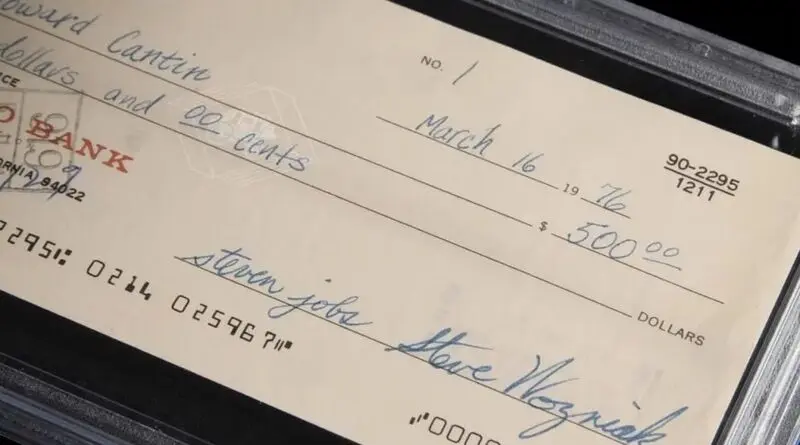 oward Cantin
NO. 1
dollars and 00 cents
March 16 19 76
90-2295
1211
$ 500 00
O BANK
94022
DOLLARS
steven jobs Steve Wozniak
2295 0214 025967
0000